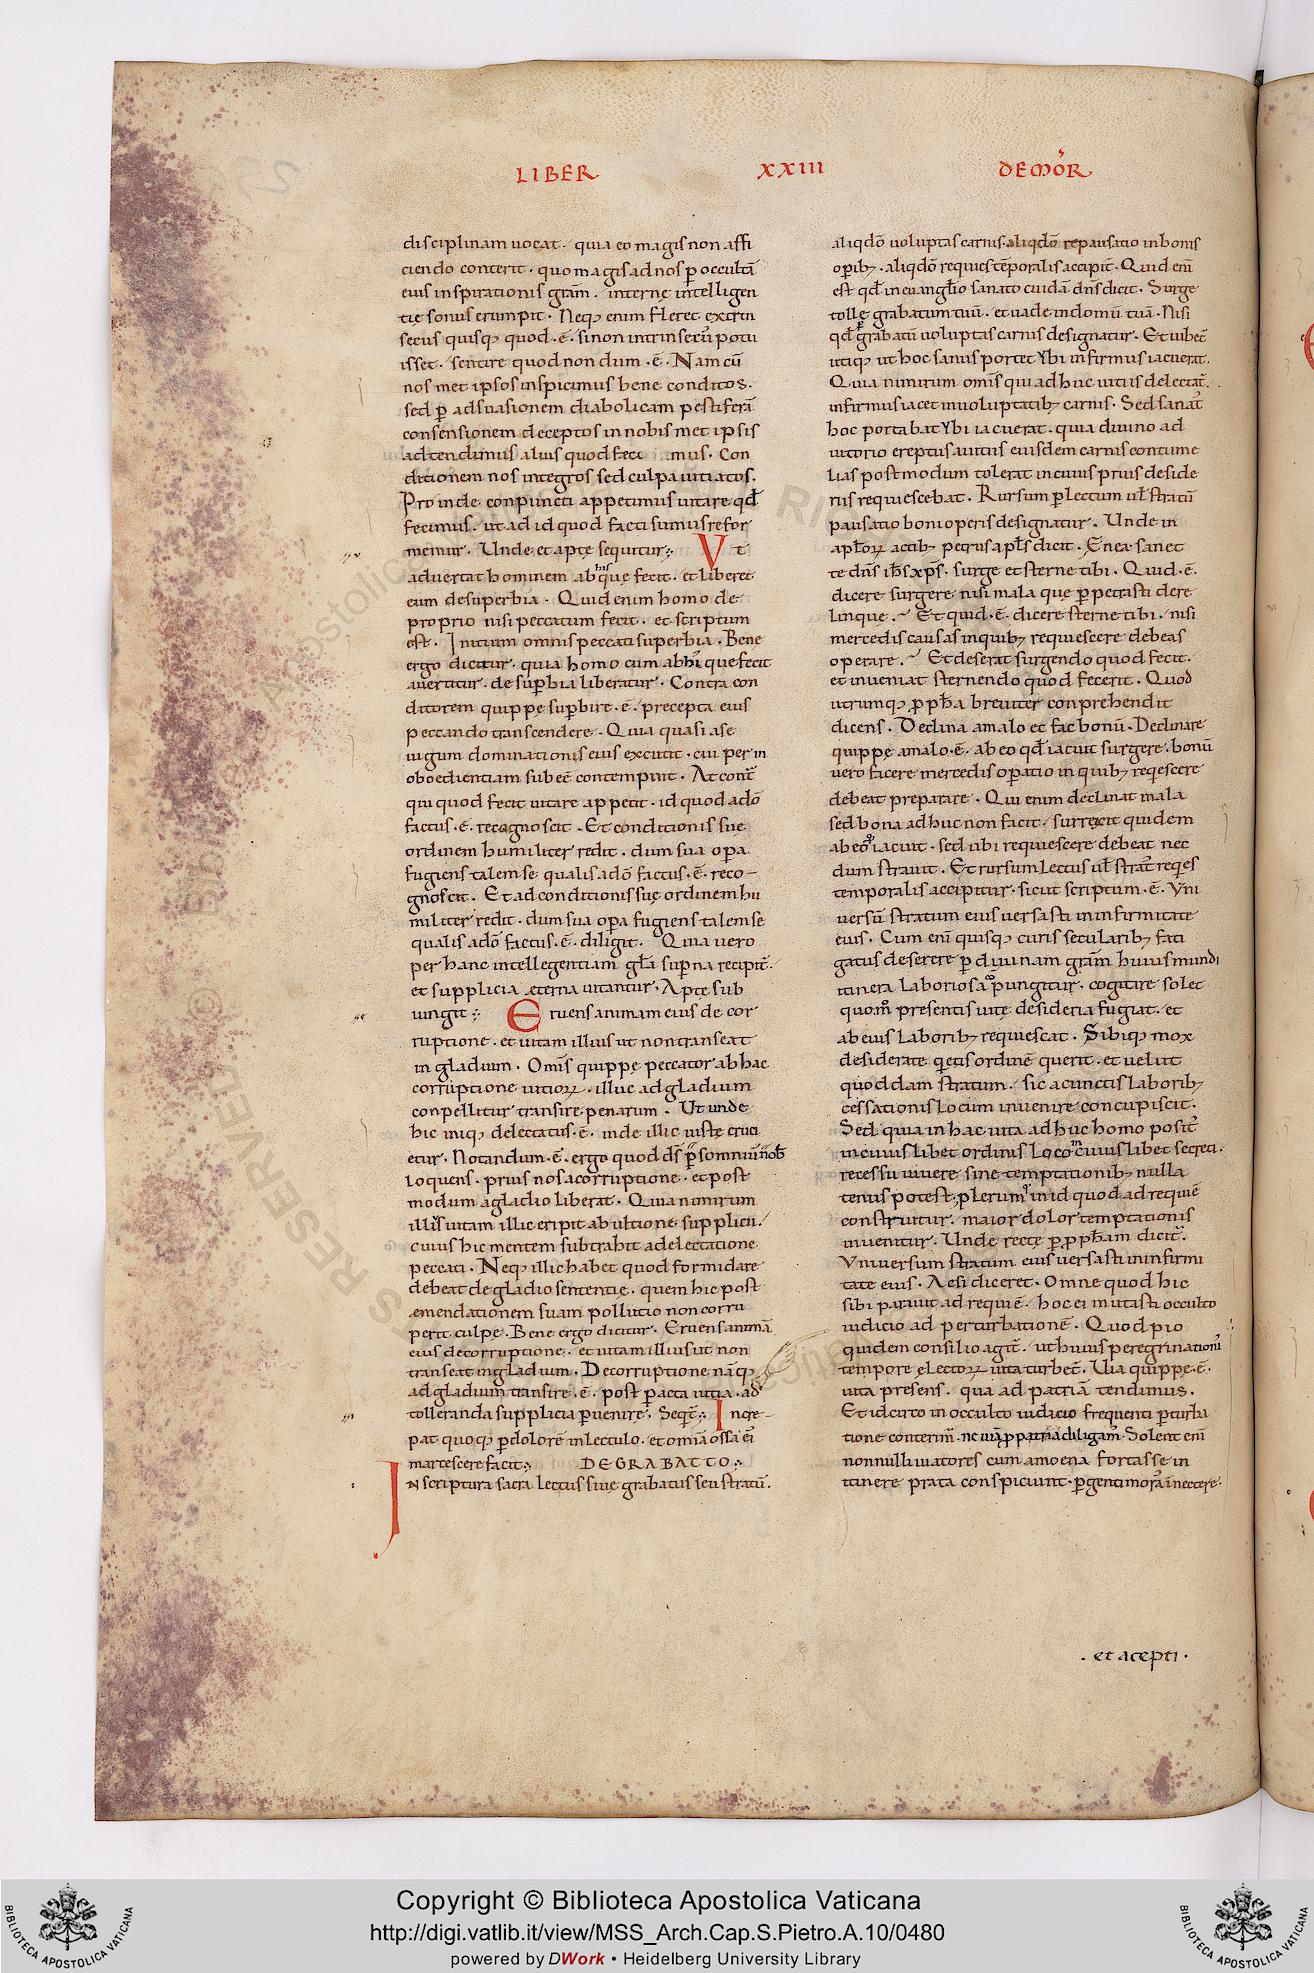 LIBER XXIII DEMOR̄
disciplinam uocat. quia eo magis non affi
ciendo conterit. quo magis ad nos p̄ occultā
eius inspirationis grām. internę intelligen
tię sonus erumpit. Neq; enim fleret extrin
secus quisq; quod .ē. si non intrinsecū potu
isset. sentire quod non dum .ē. Nam cū
nos met ipsos inspicimus bene conditos.
sed p̄ adsuasionem diabolicam pestiferā
consensionem deceptos in nobis met ipsis
adtendimus aliu[s] quod feci mus. Con
ditionem nos integros sed culpa uitiatos.
Proinde conpuncti appetimus uitare qđ
fecimus. ut ad id quod facti sumus refor
memur. Unde et aptę sequitur: Vt
aduertat hominem ab his quę fecit. et liberet
eum de superbia. Quid enim homo de
proprio nisi peccatum fecit. et scriptum
est. Initium omnis peccati superbia. Bene
ergo dicitur. quia homo cum ab hi que fecit
auertitur. de sup̄bia liberatur. Contra con
ditorem quippę sup̄bire .ē. precepta eius
peccando transcendere. Quia quasi a se
iugum dominationis eius excutit. cui per in
oboedientiam subeē contempnit. At cont̄
qui quod fecit uitare appetit. id quod a dō
factus .ē. recognoscit. Et conditionis suę
ordinem humiliter redit. dum sua opa
fugiens talem se qualis a dō factus .ē. reco-
gnoscit. Et ad conditionis suę ordinem hu
militer redit. dum sua opa fugiens talem se
qualis a dō factus .ē. diligit. Quia uero
per hanc intellegentiam gła sup̄na recipit̄.
et supplicia ęterna uitantur. Apte sub
iungit: Eruens animam eius de cor
ruptione. et uitam illius ut non transeat
in gladium. Omīs quippę peccator ab hac
corruptione uitioꝝ. illuc ad gladium
conpellitur transire penarum. Ut unde
hic iniq; delectatus .ē. inde illic iustę cruci
etur. Notandum .ē. ergo quod ds̄ p̄ somniū nob̄
loquens. prius nos a corruptione. et post
modum a gladio liberat. Quia nimirum
illius uitam illic eripit ab ultione supplicii.
cuius hic mentem subtrahit a delectatione
peccati. Neq; illic habet quod formidare
debeat de gladio sententię. quem hic post
emendationem suam pollutio non corru
perit culpę. Bene ergo dicitur. Eruens animā
eius de corruptione. et uitam illius ut non
transeat in gladium. De corruptione nāq;
ad gladium transire .ē. post p̄acta uitia. ad
tolleranda supplicia p̄uenire. Seqt̄: Incre-
pat quoq; p̄ dolorē in lectulo. et omīa ossa eī
martescere facit: DE GRABATTO:
IN scriptura sacra lectus siue grabatus seu stratū.
aliqdō uoluptas carnis. aliqdō repausatio in bonis
opib;. aliqdō requies tēporalis accipit̄. Quid enī
est qđ in euanglīo sanato cuidā dn̄s dicit. Surge
tollę grabatum tuū. et uade in domū tuā. Nisi
qđ p̄ grabatū uoluptas carnis designatur. Et iubet̄
utiq; ut hoc sanus portet ybi infirmus iacuerat.
Quia nimirum omīs qui adhuc uitiis delectat̄.
infirmus iacet in uoluptatib; carnis. Sed sanat̄
hoc portabat ybi iacuerat. quia diuino ad
iutorio ereptus a uitiis eiusdem carnis contume
lias postmodum tolerat in cuius prius deside
riis requiescebat. Rursum p̄ lectum uł stratū
pausatio boni operis designatur. Unde in
apłoꝝ actib; petrus apłs dicit. Enea sanet
te dn̄s ih̄s xp̄s. surge et sterne tibi. Quid .ē.
dicere surgere nisi mala quę p̄petrasti dere
linque. Et quid .ē. dicere sterne tibi. nisi
mercedis causas in quib; requiescere debeas
operare. Et deserat surgendo quod fecit.
et inueniat sternendo quod fecerit. Quod
utrumq; p̄pħa breuiter conprehendit
dicens. Declina a malo et fac bonū. Declinare
quippę a malo .ē. ab eo qđ iacuit surgere. bonū
uero facere mercedis opatio in quib; reqescere
debeat preparare. Qui enim declinat mala
sed bona adhuc non facit. surrexit quidem
ab eo q̊ iacuit. sed ubi requiescere debeat nec
dum strauit. Et rursum lectus uł strat̄ reqes
temporalis accipitur. sicut scriptum .ē. Vni
uersū stratum eius uersasti in infirmitate
eius. Cum enī quisq; curis secularib; fati
gatus deserere p̄ diuinam grām huius mundi
itinera laboriosa p̄pungitur. cogitare solet
quom̄ presentis uitę desideria fugiat. et
ab eius laborib; requiescat. Sibiq; mox
desiderate qetis ordinē querit. et uelut
quoddam stratum. sic a cunctis laborib;
cessationis locum inuenire concupiscit.
Sed quia in hac uita adhuc homo posit̄
in cuius libet ordinis loco in cuius libet secreti.
recessu uiuere sine temptationib; nulla
tenus potest. plerumq in id quod ad requiē
construitur. maior dolor temptationis
inuenitur. Unde rectę p̄ p̄pħam dicit̄.
Vniuersum stratum eius uersasti in infirmi
tate eius. Ac si diceret. Omne quod hic
sibi parauit ad requiē. hoc ei mutasti occulto
iudicio ad perturbationē. Quod pio
quidem consilio agit̄. ut huius peregrinationi
tempore electoꝝ uita turbet̄. Uia quippę .ē.
uita presens. qua ad patriā tendimus.
Et idcirco in occulto iudicio frequenti p̄turba
tione conterim̄. ne uiā p̄ patria diligam̄. Solent enī
nonnulli uiatores cum amoena fortasse in
itinere prata conspiciunt. p̄gendi morā innectere.
. et acepti .
Copyright © Biblioteca Apostolica Vaticana
http://digi.vatlib.it/view/MSS_Arch.Cap.S.Pietro.A.10/0480
powered by DWork • Heidelberg University Library
BIBLIOTECA APOSTOLICA VATICANA
BIBLIOTECA APOSTOLICA VATICANA